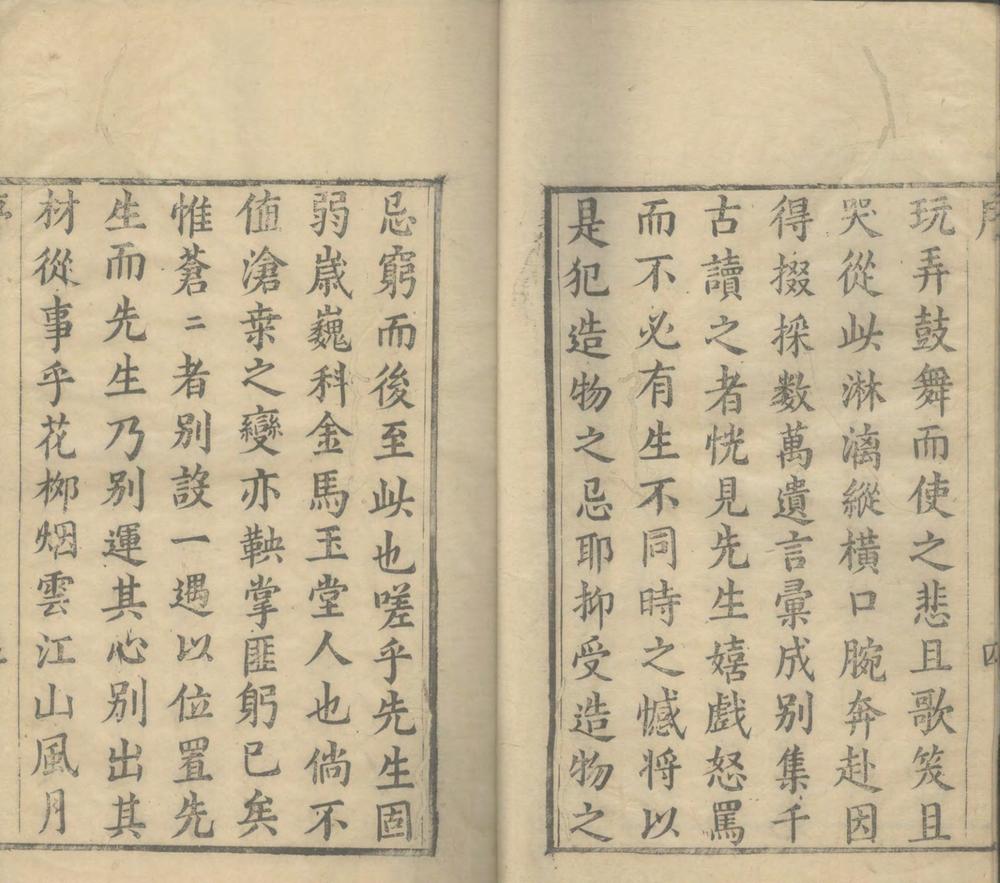 玩弄鼓舞而使之悲且歌笑且
哭從此淋漓縱橫口腕奔赴因
得掇採数萬遺言彙成别集千
古讀之者恍見先生嬉戲怒罵
而不必有生不同時之憾将以
是犯造物之忌耶抑受造物之
忌窮而後至此也嗟乎先生固
弱嵗巍科金馬玉堂人也倘不
值滄桒之變亦鞅掌匪躬已矣
惟蒼二者别設一遇以位置先
生而先生乃别運其心别出其
材從事乎花桺烟雲江山風月